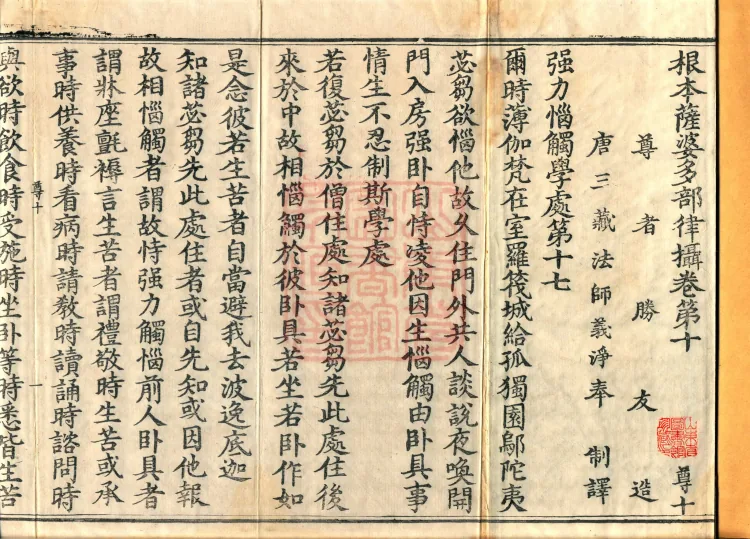 根本薩婆多部律攝卷第十 尊十
尊者勝友造
唐三藏法師義淨奉 制譯
强力惱觸學處第十七
爾時薄伽梵在室羅筏城給孤獨園鄔陀夷
苾芻欲惱他故久住門外共人談說夜喚開
門入房强卧自恃凌他因生惱觸由卧具事
情生不忍制斯學處
若復苾芻於僧住處知諸苾芻先此處住後
來於中故相惱觸於彼卧具若坐若卧作如
是念彼若生苦者自當避我去波逸底迦
知諸苾芻先此處住者或自先知或因他報
故相惱觸者謂故恃强力觸惱前人卧具者
謂牀座氈褥言生苦者謂禮敬時生苦或承
事時供養時看病時請教時讀誦時諮問時
尊十
一
與欲時飲食時受施時坐卧等時悉皆生苦